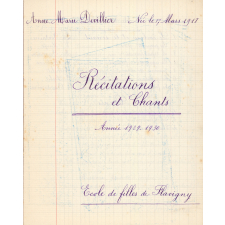 Anne Marie Devillier Née le 17 Mars 1918
Récitations
et Chants
Année 1929-1930
Ecole de filles de Flavigny